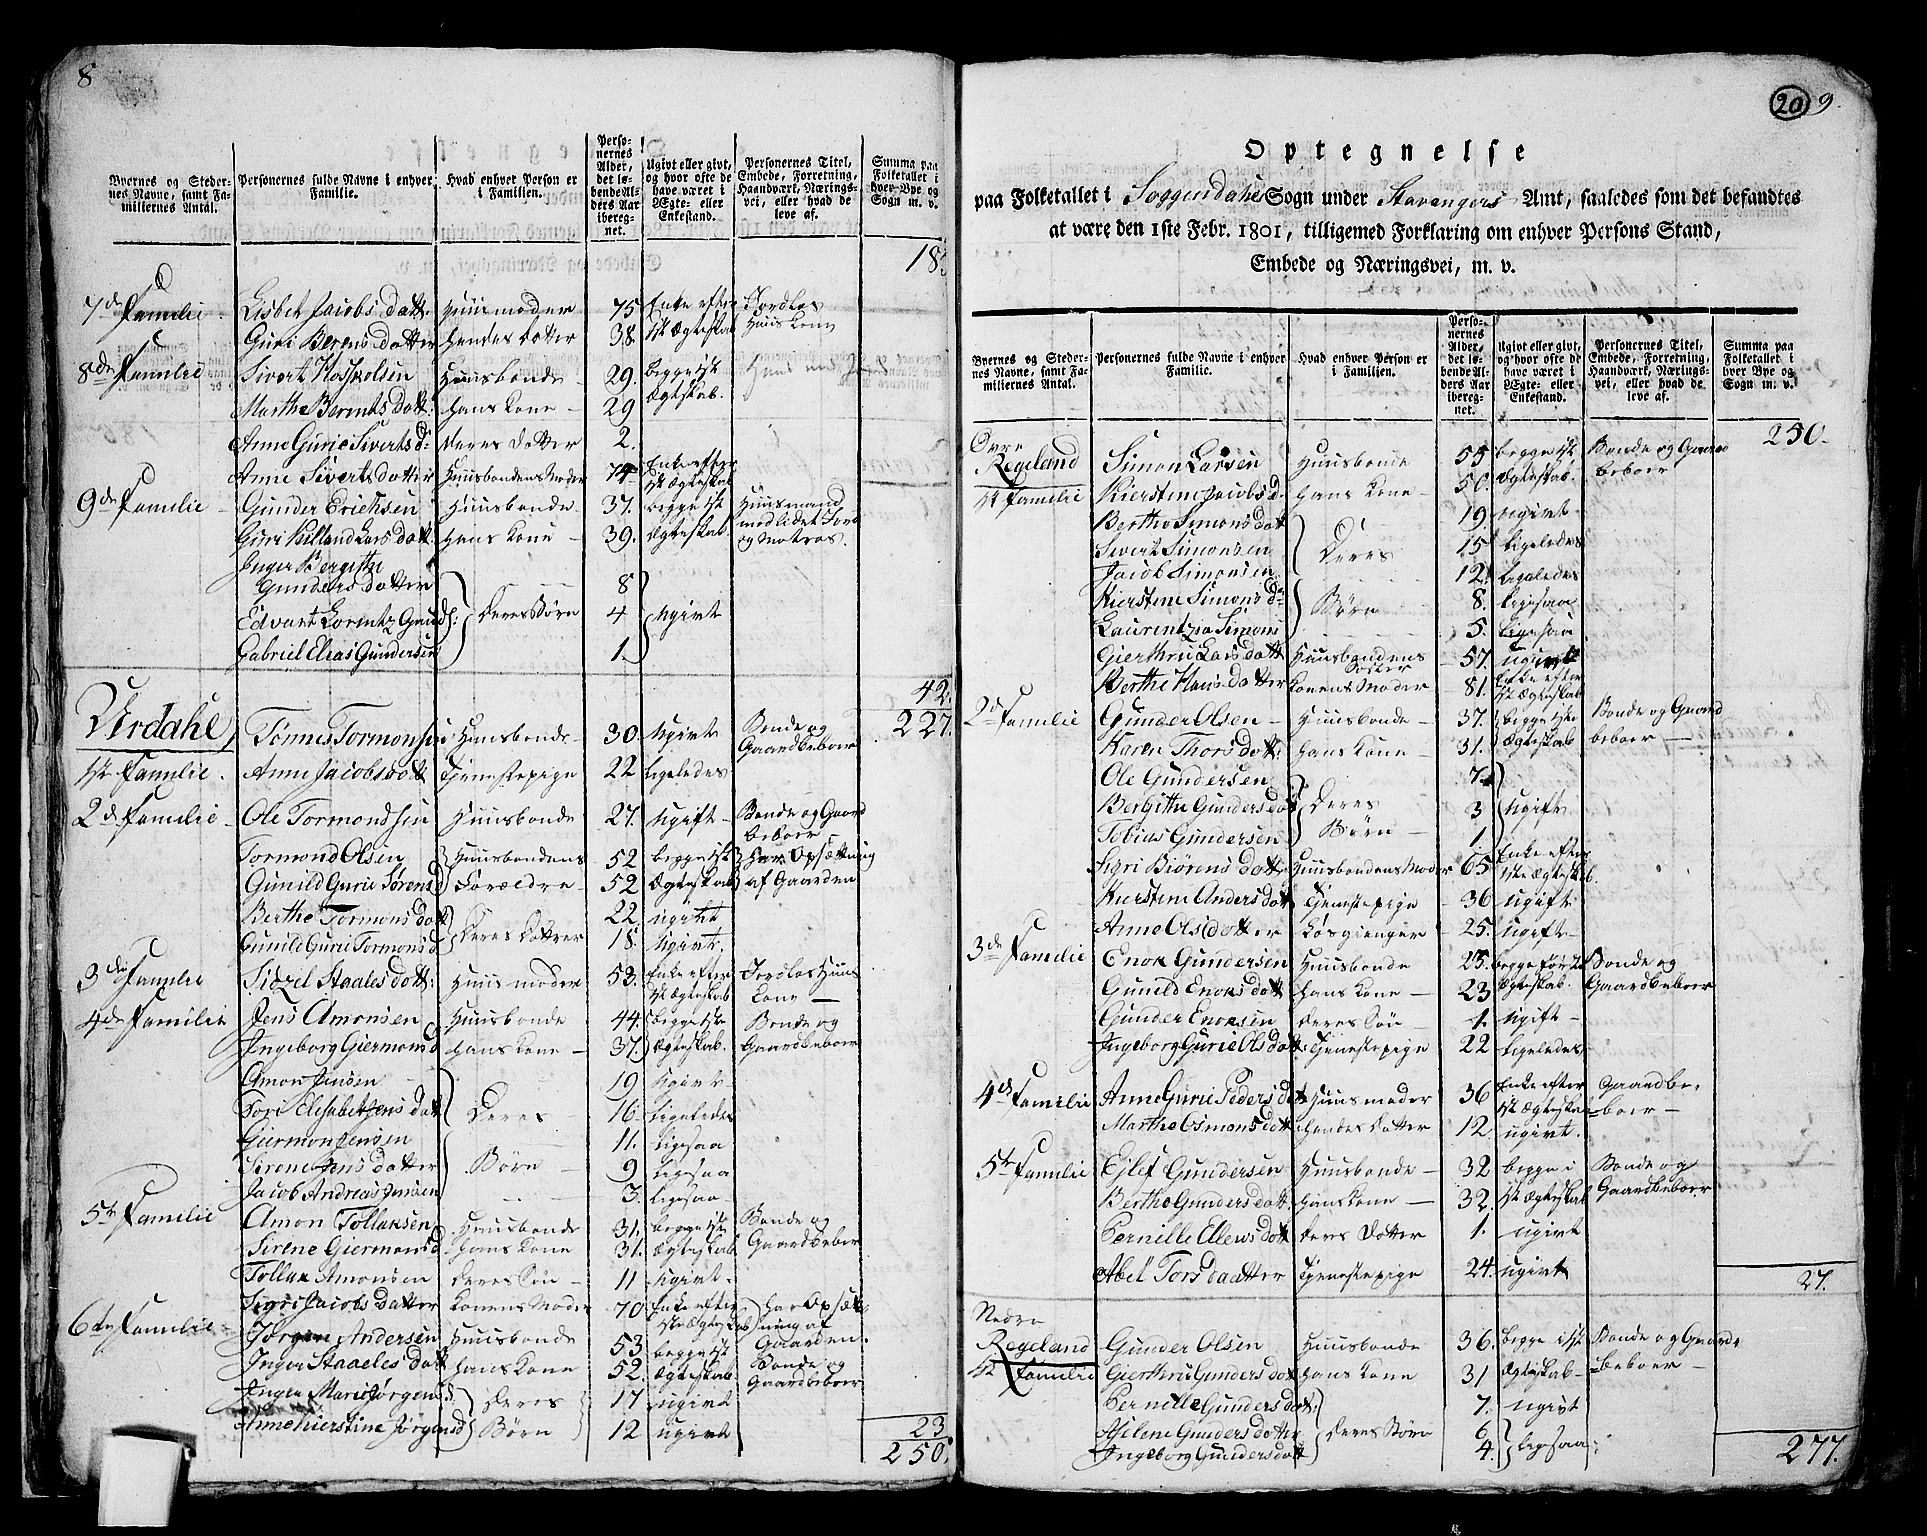 8
Byernes og Steder-
nes Navne, samt Fa-
miliernes Antal.
Personernes fulde Navne i enhver
Familie.
Hvad enhver Person er
i Familien.
Perso-
nernes
Alder,
det lø-
bende Al-
ders Aar
iberég-
net.
Ugivt eller givt,
og hvor ofte de
have været i
Ægte- eller
Enkestand.
Personernes Titel,
Embede, Forretning,
Haandværk, Nærings-
vei, eller hvad de
leve af.
Summa paa
Folketallet i
hver Bye og
Sogn m. v.
7de Familie Lisbet Jacobs Datt: Huusmoder 75 Enke efter Jordløs
Guri Berens Datter hendes Dotter 38 1st Ægteskab Huus Kone
8de Familie Sivert Hoskolsen Huusbonde 29. begge 1st
Marthe Berents Dott: hans Kone – 29 Ægteskab.
Anne Gurie Siverts D: deres Dotter 2.
Anne Siverts Datter Huusbondens Moder 74 Enke efter 1st Ægteskab
9de Familie Gunder Erichsen Huusbonde 37. begge 1st Huusmand
Guri Killand Lars Dott. hans Kone – 39. Ægteskab. med lidet Jord og Matros.
Inger Bergithe
Gunders Datter 8
Edvart Lorentz Gund S: deres Børn 4 Ugivt
Gabriel Elias Gundersen 1.
42.
Urdahl, Tønnes Tormonsen Huusbonde 30. Ugivt Bonde og 227.
Gaardbeboer
1ste Familie. Anne Jacobs Dott Tjenestepige 22 Ligeledes
2d Familie Ole Tormondsen Huusbonde 27. Ugift Bonde og Gaard
beboer
Tormond Olsen Huusbondens 52 begge 1st har Opsættning
Gunild Gurie Sørens D Forældre – 52 Ægteskab af Gaarden
Berthe Tormons Dott 22 ugivt
Gunild Gurie Tormons D deres Døttrer 18. Ugivt.
3de Familie Sidzel Staales Dott: Huusmoder 53. Enke efter Jordløs Huus
1st Ægteskab Kone –
4de Familie Jens Amonsen Huusbonde 44. begge 1ste Bonde og
Ingeborg Giermons D hans Kone – 37. Ægteskab. Gaardbeboer
Amon Jensen 19 Ugivt
Tori Elisabet Jens Dat deres 16. Ligeledes
Giermon Jensen 11. Ligesaa
Sirene Jens Datter Børn 9 Ligesaa
Jacob Andreas Jensen 3. Ligesaa
5te Familie Amon Tollaksen Huusbonde 31. begge 1ste Bonde og
Sirene Giermons D hans Kone 31. Ægteskab Gaardbeboer
Tollak Amonsen deres Søn – 11 Ugivt.
Sigri Jacobs Datter Konens Moder 70 Enke efter har Opsæt-
1ste Ægteskab ning af Gaarden.
6te Familie Jørgen Andersen Huusbonde 53 begge 1st Bonde og
Inger Staaeles Dott hans Kone 52. Ægteskab Gaardbeboer
Inger Marie Jørgens D: deres 17 Ugivt
Anne Kierstine Jørgens D Børn 12 ugivt 23
250.
20 9.
Optegnelse
paa Folketallet i Soggendahls Sogn under Stavangers Amt, saaledes som det befandtes
at være den 1ste Febr. 1801, tilligemed Forklaring om enhver Persons Stand,
Embede og Næringsvei, m. v.
Byernes og Steder-
nes Navne, samt Fa-
miliernes Antal.
Personernes fulde Navne i enhver
Familie.
Hvad enhver Person er
i Familien.
Perso-
nernes
Alder,
det lø-
bende Al-
ders Aar
ibereg-
net.
Ugivt eller givt,
og hvor ofte de
have været i
Ægte- eller
Enkestand.
Personernes Titel,
Embede, Forretning,
Haandværk, Nærings-
vei, eller hvad de
leve af.
Summa paa
Folketallet i
hver Bye og
Sogn m. v.
250.
Øvre
Regeland Simon Larsen Huusbonde 55 begge 1st Bonde og Gaard
1st Familie Kierstine Jacobs D. hans Kone – 50. Ægteskab. beboer
Berthe Simons Datt 19. Ugivt
Sivert Simonsen deres 15 Ligeledes
Jacob Simonsen 12. Ligeledes
Kierstine Simons D: Børn 8. Ligesaa
Laurentzia Simons 5. Ligesaa
Gierthru Lars Datt Huusbondens Søster 57. ugivt
Berthe Hans Datter Konens Moder 81. Enke efter 1st Ægteskab
2d Familie Gunder Olsen – Huusbonde – 37. begge 1ste Bonde og Gaard
Karen Thors Dott: hans Kone – 31. Ægteskab beboer –
Ole Gundersen 7
Bergithe Gunders Dot deres 3 Ugift
Tobias Gundersen Børn – 1
Sigri Biørens Datt Huusbondens Moder 65 Enke efter 1ste Ægteskab.
Kierstine Anders Dott Tjenestepige 36 Ugift
Anne Ols Datter Løsgienger 25. Ugift
3de Familie Enok Gundersen Huusbonde 25. begge første Bonde og
Gunild Enoks Datt hans Kone – 23 Ægteskab. Gaardbeboer
Gunder Enoksen deres Søn 1. Ugift –
Ingeborg Gurie Ols Datt: Tjenestepige 22 Ligeledes
4de Familie Anne Gurie Peders Dot Huusmoder 36 Enke efter Gaardbe-
1st Ægteskab =boer –
Marthe Osmons Dott hendes Datter 12. ugivt.
5te Familie Ejlef Gundersen Huusbonde – 32 begge i Bonde og
Berthe Gunders Datt: hans Kone – 32. 1st Ægteskab Gaardbeboer
Pernille Ellevs Dott deres Dotter 1. ugivt
Abel Tors Daatter Tjenestepige 24. ugivt
27.
Nedre
Regeland Gunder Olsen Huusbonde 36. begge i 1st Bonde og Gaard
1st Familie Gierthru Gunders Dott hans Kone 31 Ægteskab – =beboer –
Pernille Gunders Dott: 7. ugivt
Asselene Gunders Dotter deres Børn 6
Ingeborg Gunders Dott 4. Ligesaa
277.